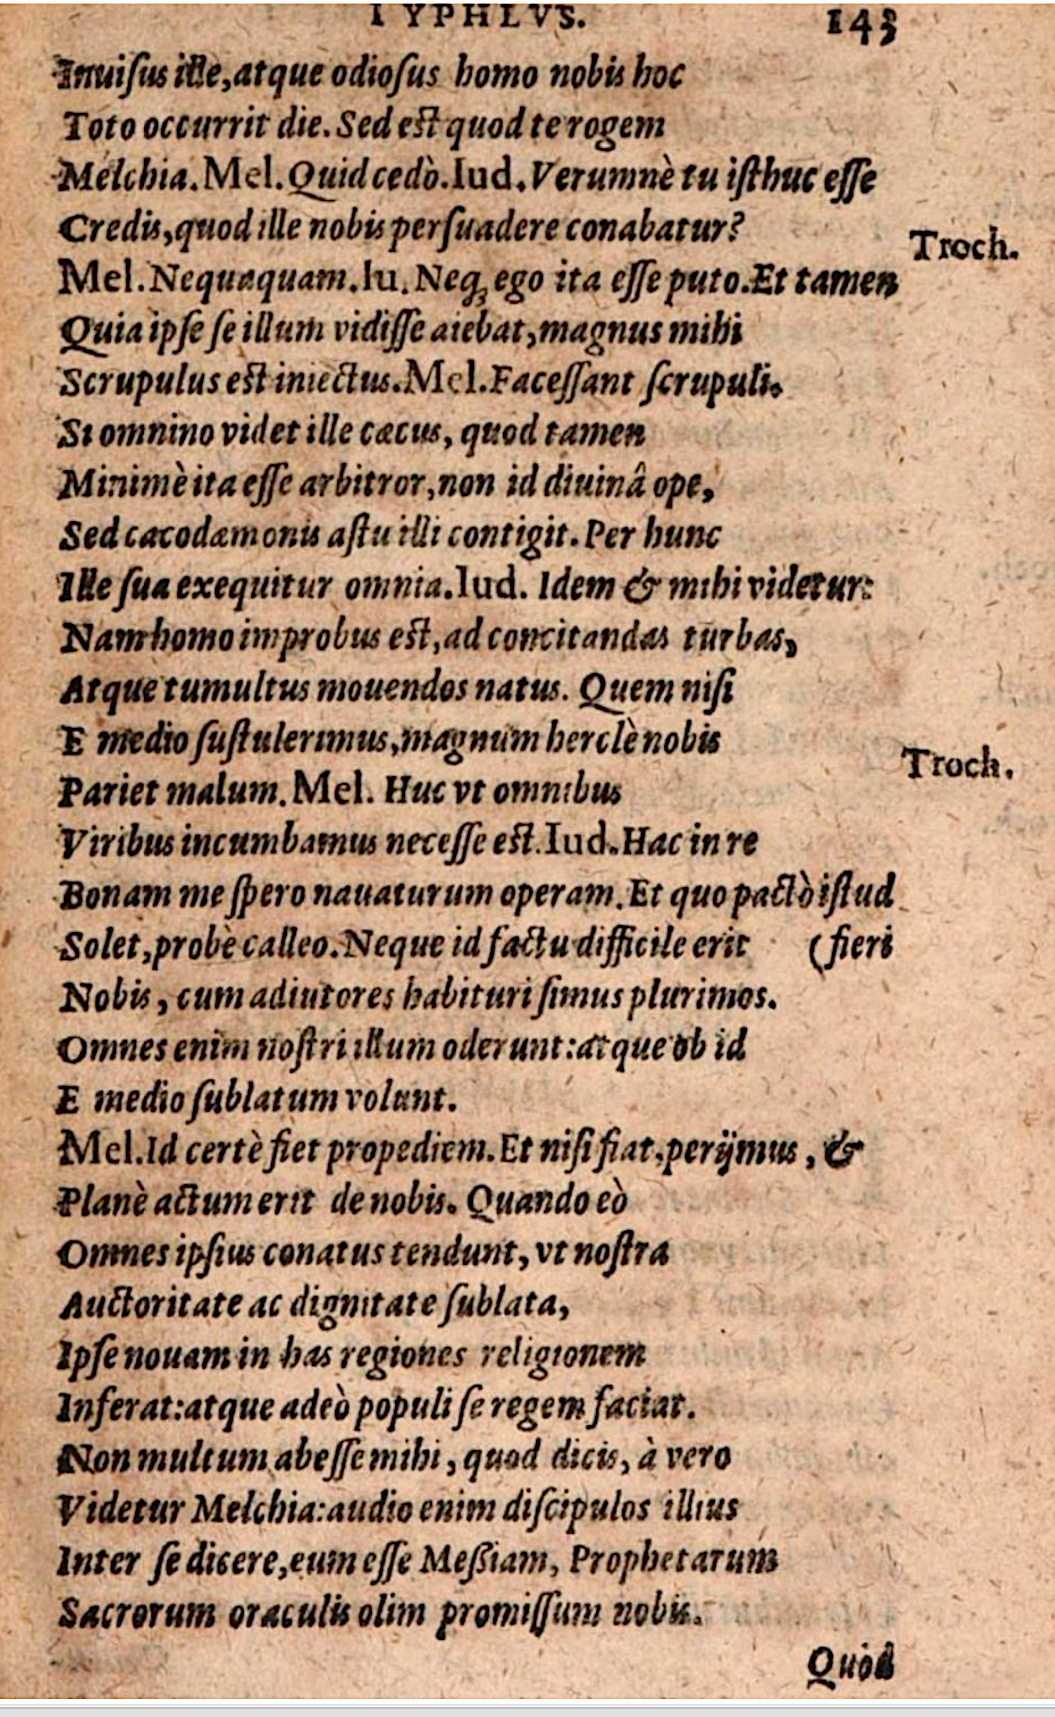 TYPHLVS. 143
Inuiſus ille, atque odioſus homo nobis hoc
Toto occurrit die. Sed est quod te rogem
Melchia. Mel. Quid cedò. Iud. Verumnè tu iſthuc eſſe
Credis, quod ille nobis perſuadere conabatur?
Troch.
Mel. Nequaquam. Iu. Neq; ego ita eſſe puto. Et tamen
Quia ipſe ſe illum vidiſſe aiebat, magnus mihi
Scrupulus est iniectus. Mel. Faceſſant ſcrupuli.
Si omnino videt ille cæcus, quod tamen
Minimè ita eſſe arbitror, non id diuinâ ope,
Sed cacodæmonis aſtu illi contigit. Per hunc
Ille ſua exequitur omnia. Iud. Idem & mihi videtur:
Nam homo improbus est, ad concitandas turbas,
Atque tumultus mouendos natus. Quem niſi
E medio ſuſtulerimus, magnum herclè nobis
Troch.
Pariet malum. Mel. Huc vt omnibus
Viribus incumbamus neceſſe est. Iud. Hac in re
Bonam me ſpero nauaturum operam. Et quo pactò iſtud
Solet, probè calleo. Neque id factu difficile erit (fieri
Nobis, cum adiutores habituri ſimus plurimos.
Omnes enim noſtri illum oderunt: atque ob id
E medio ſublatum volunt.
Mel. Id certè fiet propediem. Et niſi fiat, perijmus, &
Planè actum erit de nobis. Quando eò
Omnes ipſius conatus tendunt, vt noſtra
Auctoritate ac dignitate ſublata,
Ipſe nouam in has regiones religionem
Inferat: atque adeò populi ſe regem faciat.
Non multum abeſſe mihi, quod dicis, à vero
Videtur Melchia: audio enim diſcipulos illius
Inter ſe dicere, eum eſſe Meßiam, Prophetarum
Sacrorum oraculis olim promiſſum nobis.
Quòd